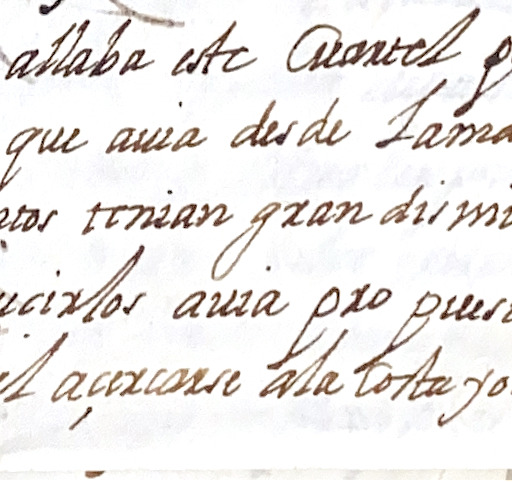 allaba este Cuartel p
que auia desde Lama
ntos tenian gran dismi
ucirlos auia pro pues
el açercarse ala Costa yo